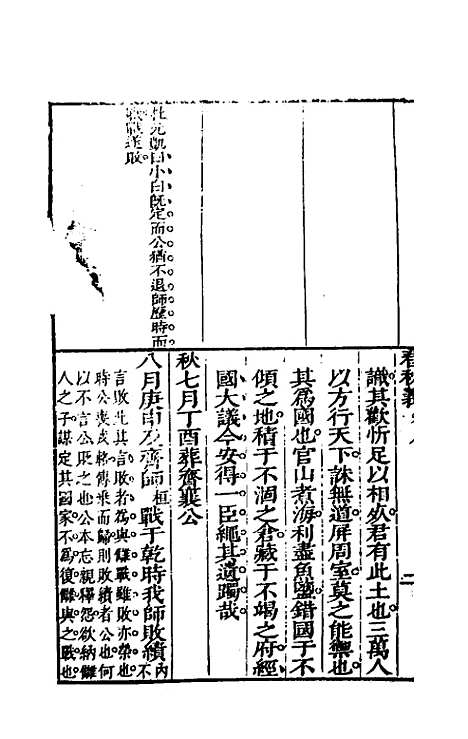 杜元凱曰小白既定而公猶不退師歷時而
戰戰遂敗
識其歡忻足以相死君有此土也三萬人
以方行天下誅無道屏周室莫之能禦也
其爲國也官山煮海利盡魚鹽錯國于不
傾之地積于不涸之倉藏于不竭之府經
國大議今安得一臣繩其遺躅哉
秋七月丁酉葬齊襄公
八月庚申及齊師戰于乾時我師敗績
桓
內不
言敗此其言敗者爲與讎戰雖敗亦榮也
時公喪戎路傳乘而歸則敗績者公也何
以不言公貶之也公本忘親釋怨欲納讎
人之子謀定其國家不爲復讎與之戰也